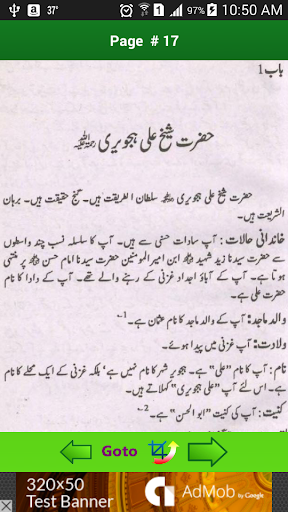 37°
97%
10:50 AM
Page # 17
باب 1
حضرت شیخ علی ہجویری رحمۃ اللہ علیہ
حضرت شیخ علی ہجویری سلطان الطریقت ہیں۔ گنج حقیقت ہیں۔ برہان
الشریعت ہیں۔
خاندانی حالات : آپ سادات حسنی سے ہیں۔ آپ کا سلسلہ نسب چند واسطوں
سے حضرت سیدنا زید شہید ابن امیر المومنین حضرت سیدنا امام حسن پر منتہی
ہوتا ہے۔ آپ کے آباؤ اجداد غزنی کے رہنے والے تھے۔ آپ کے دادا کا نام
حضرت علی ہے۔
والد ماجد : آپ کے والد ماجد کا نام عثمان ہے۔ 1
ولادت : آپ غزنی میں پیدا ہوئے۔
نام : آپ کا نام "علی" ہے۔ ہجویر شہر کا نام نہیں ہے' بلکہ غزنی کے ایک محلے کا نام
ہے۔ اس لئے آپ "علی ہجویری" کہلاتے ہیں۔
کنیت : آپ کی کنیت "ابو الحسن" ہے۔ 2
Goto
320×50
Test Banner
AdMob by Google